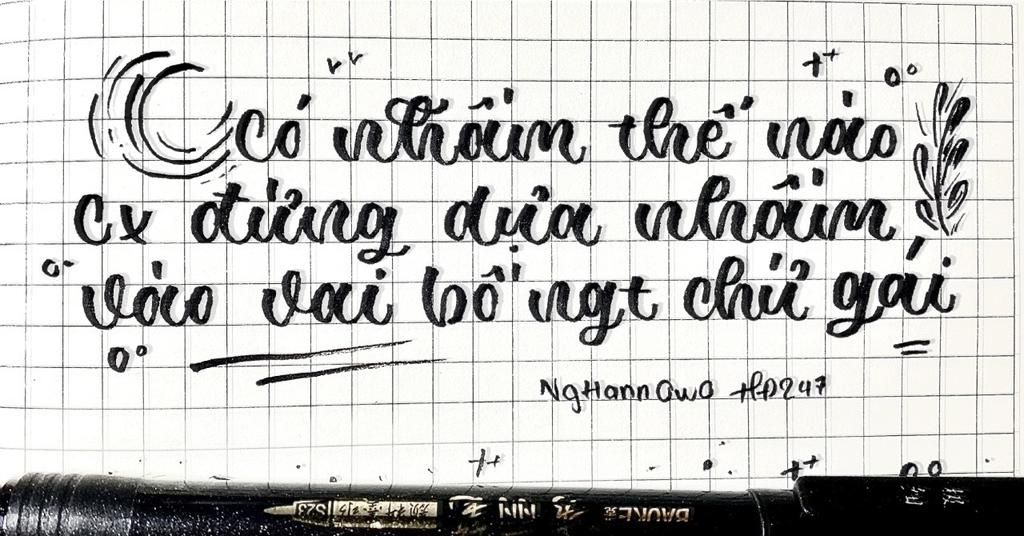 có nhầm thế nào
cx đừng dựa nhầm
vào vai bồ ngt chứ gái
NgHannOwO HD247
BAUKE